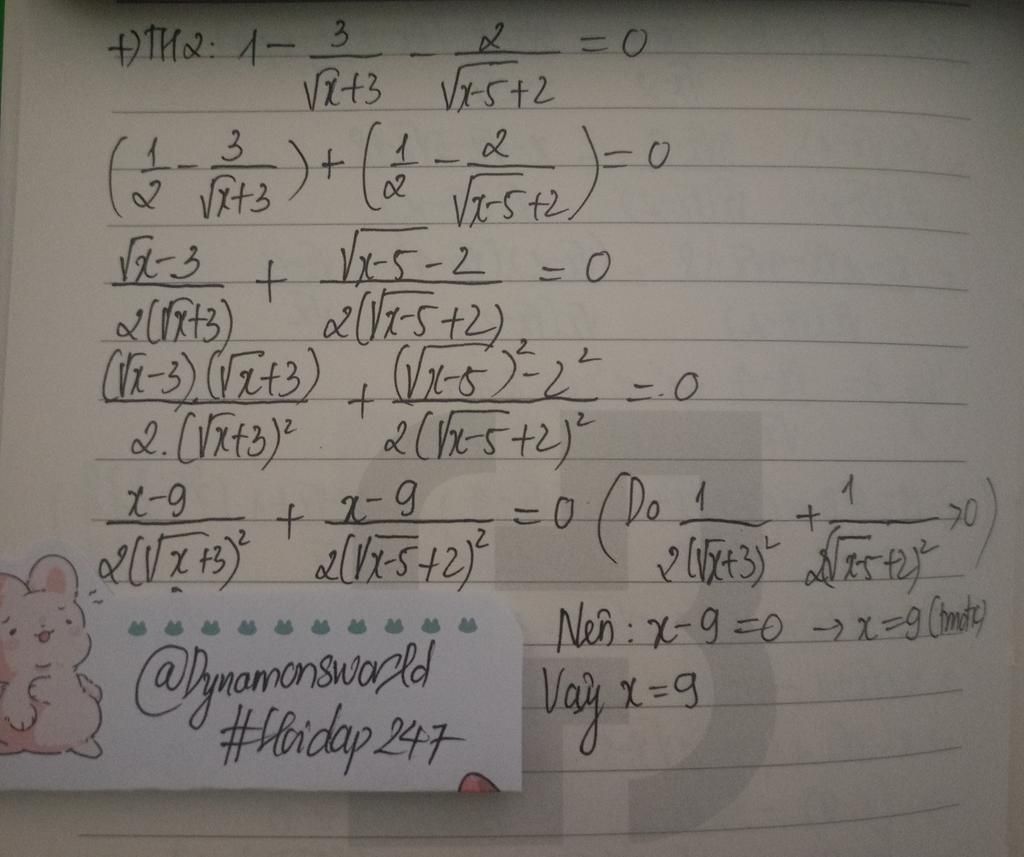 +) TH2: 1 - 3/(√x+3) - 2/(√(x-5)+2) = 0
(1/2 - 3/(√x+3)) + (1/2 - 2/(√(x-5)+2)) = 0
(√x-3)/(2(√x+3)) + (√(x-5)-2)/(2(√(x-5)+2)) = 0
((√x-3).(√x+3))/(2.(√x+3)²) + ((√(x-5))²-2²)/(2(√(x-5)+2)²) = 0
(x-9)/(2(√x+3)²) + (x-9)/(2(√(x-5)+2)²) = 0 (Do 1/(2(√x+3)²) + 1/(2(√(x-5)+2)²) >0)
Nên: x-9=0 → x=9 (tmđk)
Vậy x=9
@Dynamonsworld
#Hoidap247